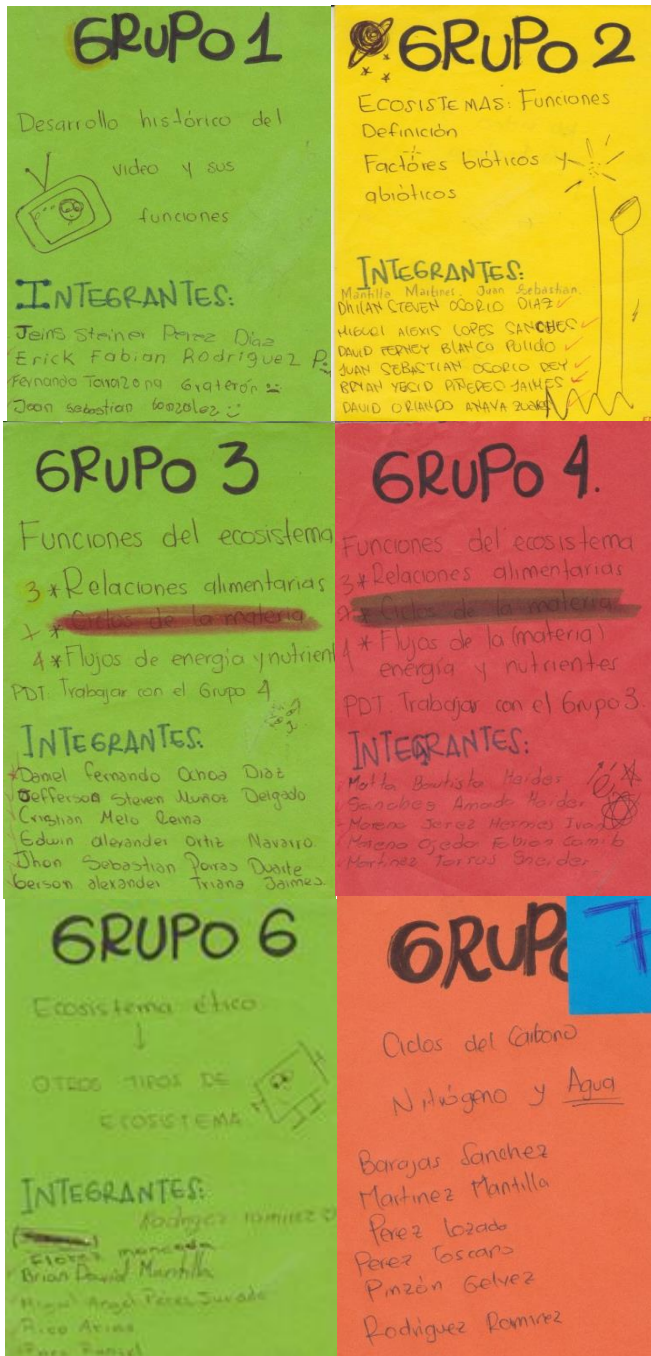 GRUPO 1
Desarrollo histórico del
video y sus
funciones
INTEGRANTES:
Jeins Steiner Perez Diaz
Erick Fabian Rodriguez P.
Fernando Tarazona Graterón
Joan sebastian Gonzalez
GRUPO 2
ECOSISTEMAS: Funciones
Definición
Factóres bióticos y
abióticos
INTEGRANTES:
Mantilla Martinez Juan Sebastian.
DHILAN STEVEN OCORIO DIAZ
MIGUEL ALEXIS LOPES SANCHES
DAVID FERNEY BLANCO PULIDO
JUAN SEBASTIAN OCORIO REY
BRYAN YECID PIÑEREO JAIMES
DAVID ORLANDO ANAYA
GRUPO 3
Funciones del ecosistema
3 * Relaciones alimentarias
* Ciclos de la materia
4 * Flujos de energía y nutrient
PDT. Trabajar con el Grupo 4
INTEGRANTES:
Daniel fernando Ochoa Diaz
Jefferson Steven Muñoz Delgado
Cristian Melo Reina
Edwin alexander ortiz Navarro.
Jhon Sebastian Porras Duarte
Gerson alexander Triana Jaimes.
GRUPO 4.
Funciones del ecosistema
3 * Relaciones alimentarias
* Ciclos de la materia
1 * Flujos de la (materia)
energía y nutrientes
PDT. Trabajar con el Grupo 3.
INTEGRANTES:
Motta Bautista Haider
Sanches Amado Haider
Moreno Jerez Hermes Ivan
Moreno Ojeda Fabian Camilo
Martinez Torrus Sneider
GRUPO 6
Ecosistema ético
OTROS TIPOS DE
ECOSISTEMA
INTEGRANTES:
Rodriguez ramirez
Florez moncada
Brian David Mantilla
Miguel Angel Perez Jurado
Rico Arias
GRUPO 7
Ciclos del Carbono
Nitrógeno y Agua
Barajas Sanchez
Martinez Mantilla
Perez Lozado
Perez Toscano
Pinzón Gelvez
Rodriguez Ramirez